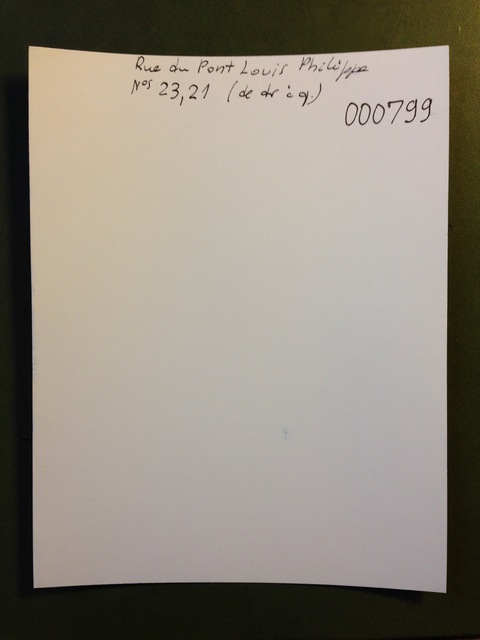 Rue du Pont Louis Philippe
Nos 23, 21 (de dr à g.)
000799